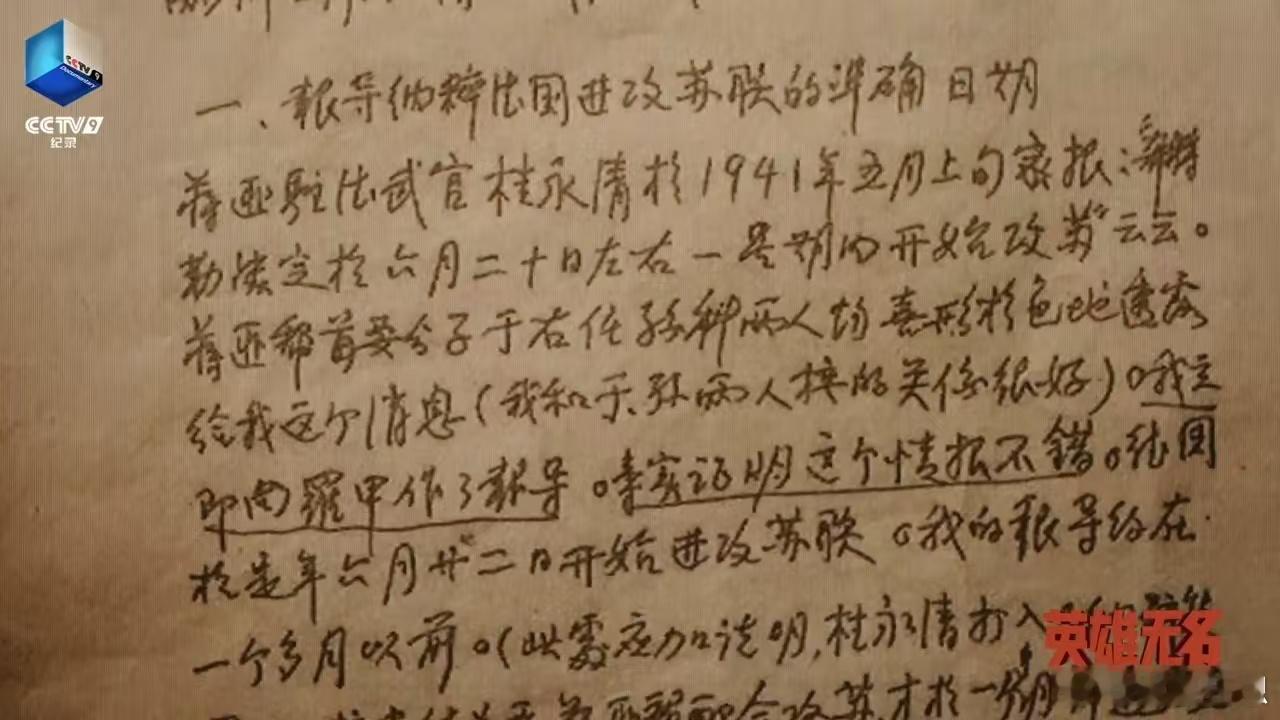 CCTV9
Documentary
CCTV9
纪录
一、报导纳粹德国进攻苏联的准确日期
蒋匪驻德武官桂永清於1941年五月上旬密报:"希特
勒决定於六月二十日左右一星期内开始攻苏"云云。
蒋匪帮首要分子于右任孙科两人均喜形於色地透露
给我这个消息(我和于、孙两人搞的关係很好)。我立
即向罗申作了报导。事实证明这个情报不错。德国
於是年六月廿二日开始进攻苏联。我的报导约在
一个多月以前。(此处应加说明,桂永清打入
英雄无名
攻苏才於一个月